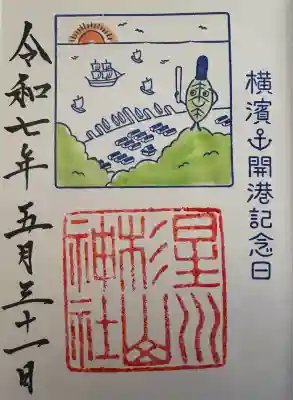 横濱⚓開港記念日
星川
杉山
神社
令和七年 五月三十一日